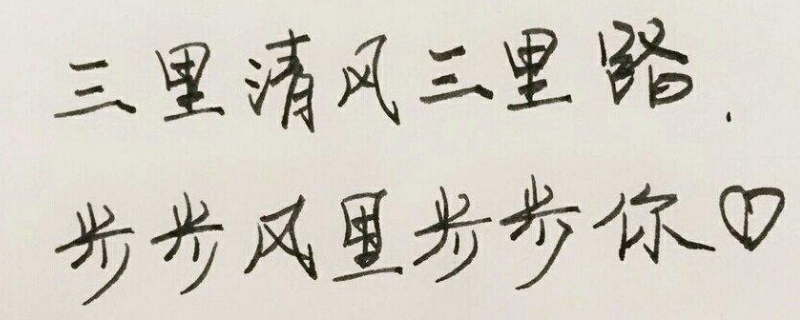 三里清风三里路.
步步风里步步你♡